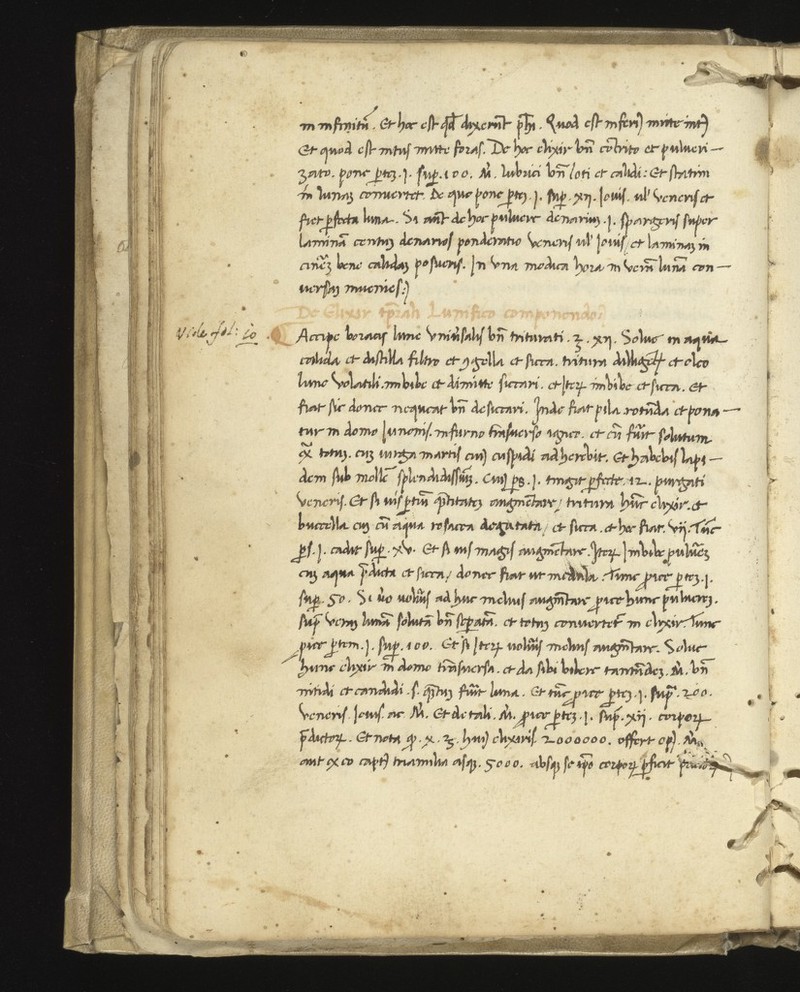 in infinitũ. Et hoc est qđ dixerũt phi. Quod est inferiꝯ mitte intꝯ
Et quod est intus mitte foras. De hoc elixir bñ contrito et pulueri—
zato. pone ptẽ .j. sup .100. M̃. lubrici bñ loti et calidi: Et statim
in lunaȝ conuertet. De quo pone ptẽ .j. sup .xij. Iouis. ul' veneris et
fiet pfecta luna. Si aũt de hoc puluere denariuȝ .j. spargeris super
laminã centuȝ denarios ponderatio veneris ul' Iouis, et laminaȝ in
bene calidaȝ posueris. In vna modica hora in verã lunã con—
uersaȝ inuenies:)
De Elixir Lunifico componendo
Vide fol: 10
Accipe boracis lune vniũsalis bñ triturati .℥. xij. Solue in aqua
calida et distilla filtro et ꝯgella et sicca. tritura et oleo
lune volatili imbibe et dimitte siccari. et iteꝝ imbibe et sicca. Et
fiat sic donec nequeat bñ desiccari. Inde fiat pila rotũda et pona—
tur in domo Iunonis. in furno trãsuerso igneo. et cũ fũit solutum
totuȝ. cuȝ uirga martis cuiꝯ cuspidi adherebit. Et habebis lapi—
dem sub mollẽ splendidissimũ. Cuiꝯ ps .j. tingit pfecte .12. purgati
veneris. Et si uis ptiũ q̃titateȝ augmẽtare, tritura hũc elixir. et
buccella eũ cũ aqua rosacea, et sicca. et hoc fiat. vij. Tũc
ps .j. cadit sup .xv. Et si uis magis augmẽtare. Iteꝝ Imbibe puluẽȝ
cuȝ aqua p̃dicta et sicca, donec fiat ut medula. Tunc proice ptẽ .j.
sup .50. Si ũo uoluĩs ad huc melius augmẽtare proice hunc pulucreȝ.
sup veraȝ lunã solutã bñ sepatã. et totuȝ conuertet in elixir. Tunc
proice ptem .j. sup .100. Et si iteꝝ uoluĩs melius augmẽtare. Solue
hunc elixir in domo trãsuersa. et da sibi bibere tantũdeȝ. M̃. bñ
nitidi et candidi. s. q̃tuȝ fũit luna. Et tũc proice ptẽ .j. sup .200.
veneris. Iouis. ac M̃. Et de tali. M̃. proice ptẽ .j. sup .xij. corpoꝝ
p̃dictoꝝ. Et nota q̃. x. ℥. huiꝯ elixiris 2000000. offert M̃.
aut ex eo capit triamilia asq̃. 5000. absq̃ se ip̃o corpoꝝ pficit